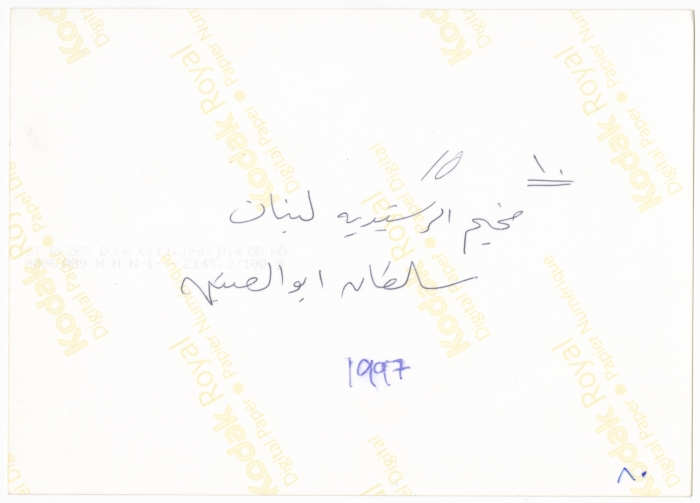 ١٠
10
مخيم الرشيديه لبنان
سلطان ابو العينين
1997
٨٠
Kodak Royal
Digital Paper • Papier Numérique